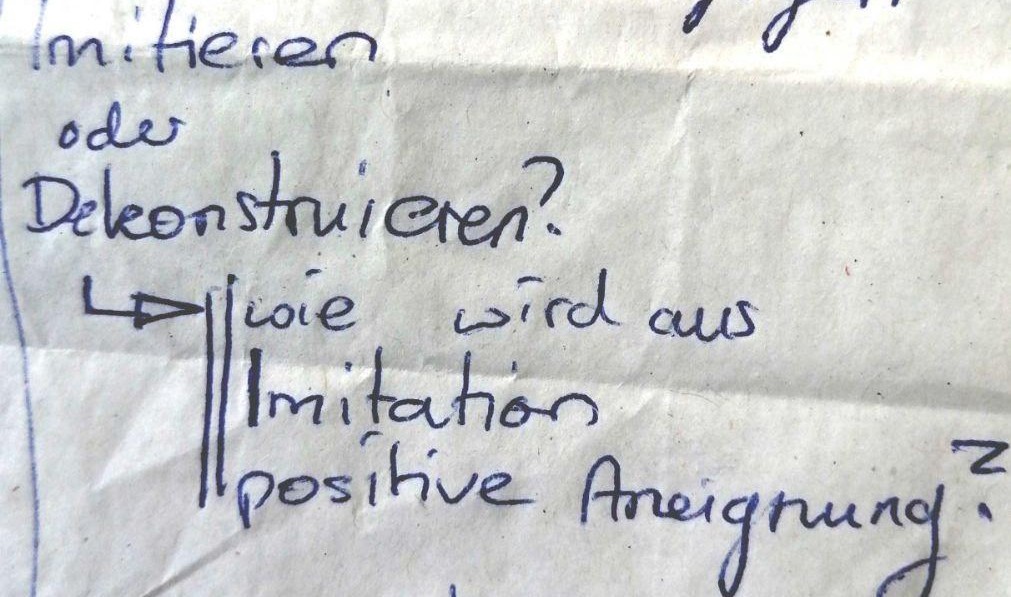 Imitieren
oder
Dekonstruieren?
wie wird aus
Imitation
positive Aneignung?